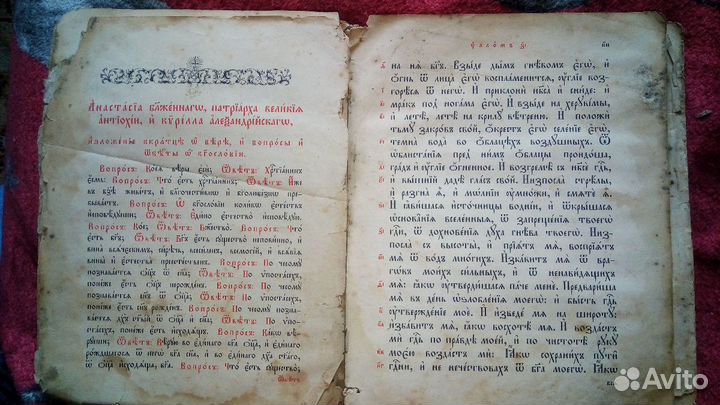 Анастасїа бл҃женнагѡ, патрїарха великїѧ
антїохїи, и҆ кѷрілла а҆леѯандрїйскагѡ,
И҆зложенїе вкратцѣ ѡ҆ вѣрѣ, и҆ вопросы и҆
ѿвѣты ѡ҆ бг҃ословїи.
Вопросъ: Коеѧ вѣры є҆си; Ѿвѣтъ: Хрⷭ҇тїанинъ
є҆смь: Вопросъ: Что є҆сть хрⷭ҇тїанинъ; Ѿвѣтъ: И҆же
въ бз҃ѣ живѧтъ, и҆ благочестивѡ и҆ бг҃олюбезнѡ пре-
бываѧ: Вопросъ: Ѿ бг҃ословїи колико є҆стествъ
и҆сповѣдуеши: Ѿвѣтъ: Едино є҆стество и҆сповѣдую.
Вопросъ: Кое; Ѿвѣтъ: Божество. Вопросъ: Что
є҆сть бг҃ъ; Ѿвѣтъ: Бг҃ъ є҆сть существо неповинно, и҆
вина всѧчєскимъ,
вина и҆ є҆стества пресущественна. Вопросъ: По чесому
познаваетсѧ ѻ҆ц҃ъ и҆ сн҃ъ; Ѿвѣтъ: По ѵ҆постасѣхъ,
понеже є҆сть ѻ҆ц҃ъ нерожденъ. Вопросъ: По чесому
познаваетсѧ сн҃ъ ѿ ѻ҆ц҃а; Ѿвѣтъ: По ѵ҆постасѣхъ,
понеже є҆сть рожденъ. Вопросъ: По чесому позна-
ваетсѧ дх҃ъ ст҃ый ѿ ѻ҆ц҃а и҆ сн҃а; Ѿвѣтъ: По ѵ҆по-
стасѣхъ, понеже є҆сть и҆сходѧщъ. Вопросъ: Какѡ
вѣруеши; Ѿвѣтъ: Вѣрую во є҆динаго ѻ҆ц҃а, и҆ є҆динаго
рождшагосѧ ѿ негѡ сн҃а, и҆ во є҆динаго дх҃а ст҃аго,
ѿ ѻ҆ц҃а и҆сходѧща, бг҃а. Вопросъ: Что є҆сть существо;
Ѿвѣтъ
ѱаломъ з҃і
на нѧ бг҃ъ. Взыде дымъ гнѣвомъ є҆гѡ, и҆
ѻ҆гнь ѿ лица є҆гѡ воспламенитсѧ, ᲂу҆глїе возго-
горѣсѧ ѿ негѡ. И҆ приклони нб҃са и҆ сниде: и҆
мракъ под ногама є҆гѡ. И҆ взыде на херꙋвімы,
и҆ летѣ, летѣ на крилꙋ вѣтренюю. И҆ положи
тьмꙋ закровъ свой, ѻ҆крестъ є҆гѡ селенїе є҆гѡ,
темна вода во ѡ҆блацѣхъ воздꙋшныхъ. Ѿ
ѡ҆блистанїѧ пред нимъ ѻ҆блацы проидоша,
градъ и҆ ᲂу҆глїе ѻ҆гненное. И҆ возгремѣ съ нб҃си гдⷭ҇ь,
и҆ вышнїй даде гласъ свой. Низпосла стрѣлы,
и҆ разгна ѧ҆, и҆ молнїи ᲂу҆множи, и҆ смѧте ѧ҆.
И҆ ꙗ҆вишасѧ и҆сточницы воднїи, и҆ ѿкрышасѧ
ѡ҆снованїѧ вселенныѧ, ѿ запрещенїѧ твоегѡ
гдⷭ҇и, ѿ дохновенїѧ дꙋха гнѣва твоегѡ. Низ-
посла съ высоты, и҆ прїѧтъ мѧ, воспрїѧтъ
мѧ ѿ водъ многихъ. И҆збавитъ мѧ ѿ вра-
гѡвъ моихъ сильныхъ, и҆ ѿ ненавидѧщихъ
мѧ: ꙗ҆кѡ ᲂу҆твердишасѧ паче мене. Предвариша
мѧ въ день ѡ҆злобленїѧ моегѡ: и҆ бысть гдⷭ҇ь
ᲂу҆твержденїе мое. И҆ и҆зведе мѧ на широтꙋ:
и҆збавитъ мѧ, ꙗ҆кѡ восхотѣ мѧ. И҆ воздастъ
ми гдⷭ҇ь по правдѣ моей, и҆ по чистотѣ рꙋкꙋ
моєю воздастъ ми: Ꙗ҆кѡ сохранихъ пꙋти
гдⷭ҇ни, и҆ не нечествовахъ ѿ бг҃а моегѡ. Ꙗ҆кѡ
Avito